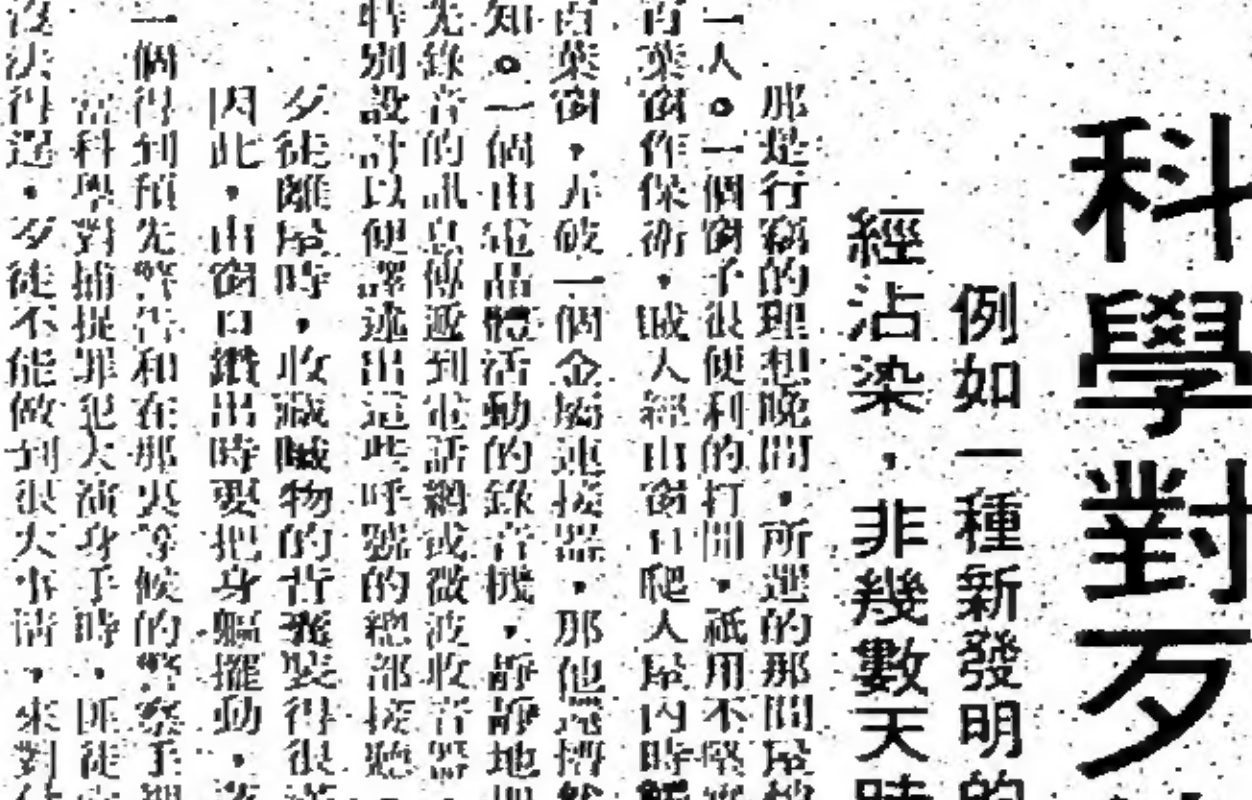 科學對歹
例如一種新發明的
經沾染,非幾數天時
那是行竊的理想晚間,所選的那間屋
一人。一個窗子很便利的打開,祇用不堅
百葉窗作保衛,賊人經由窗口爬入屋內時
百葉窗,亦破一個金屬連接器,那他
知。一個由電晶體活動的錄音機,靜靜地
先錄音的訊息傳遞到電話網或微波收音器
特別設計以便譯述出這些呼號的總部接聽
歹徒離屋時,收藏贓物的背飛裝得很
因此,由窗口鑽出時要把身軀擺動,
一個得到預先警告和在那裏等候的警察手
當科學對捕捉罪犯大演身手時,匪徒
沒法得逞,歹徒不能做到很大事情,來對付